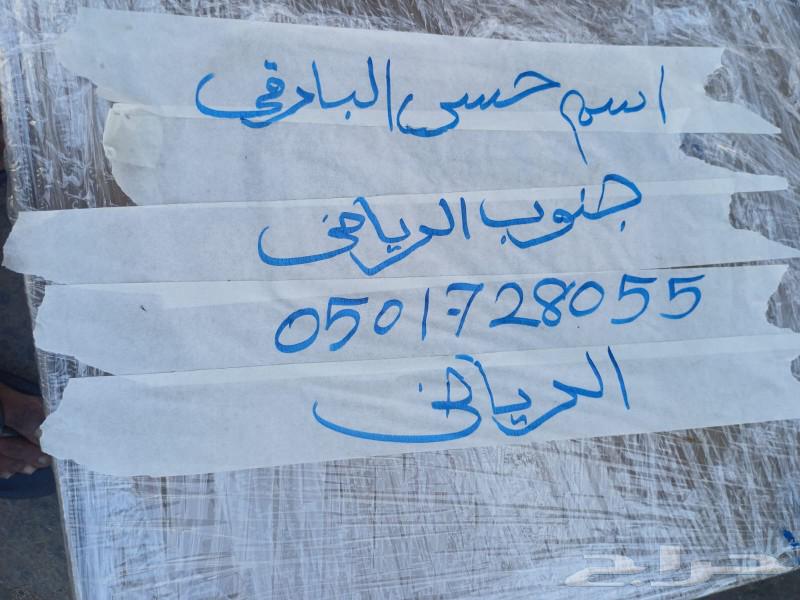 اسم حسن البارقي
جنوب الرياض
0501728055
الرياض
حراج